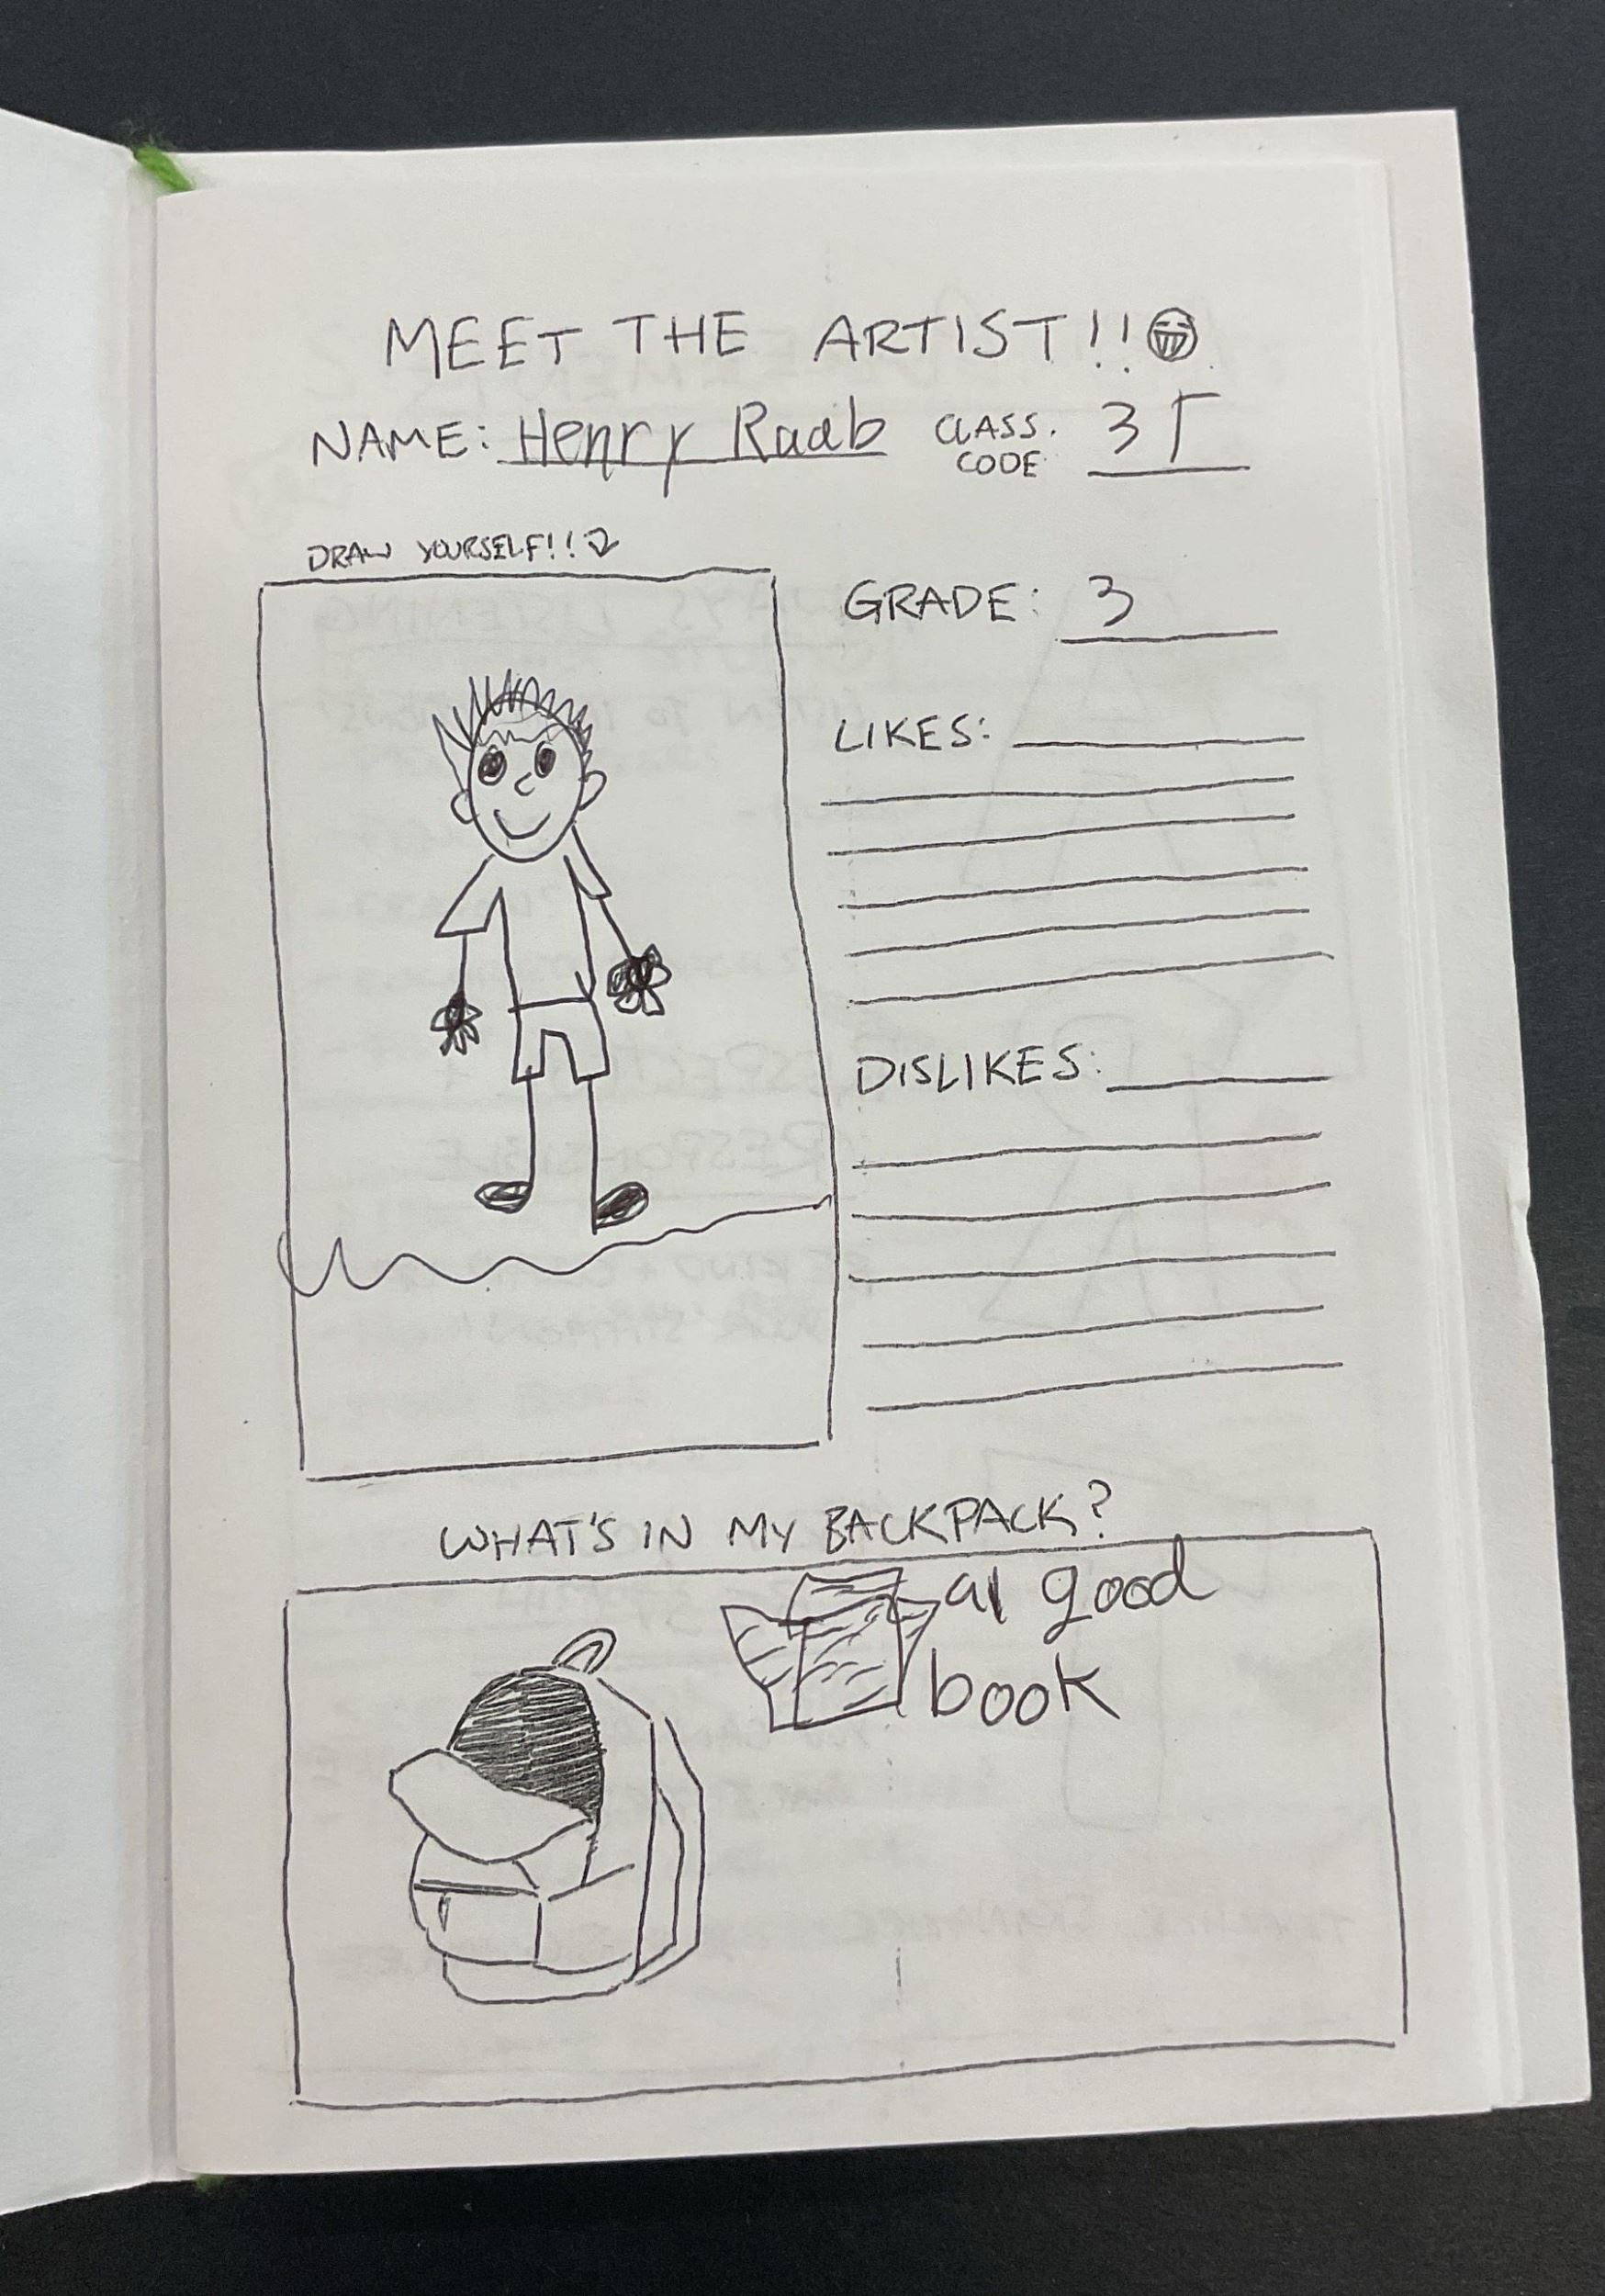 MEET THE ARTIST!!
NAME: Henry Raab CLASS. CODE 3T
DRAW YOURSELF!!
GRADE: 3
LIKES:
DISLIKES:
WHAT'S IN MY BACKPACK?
a good
book